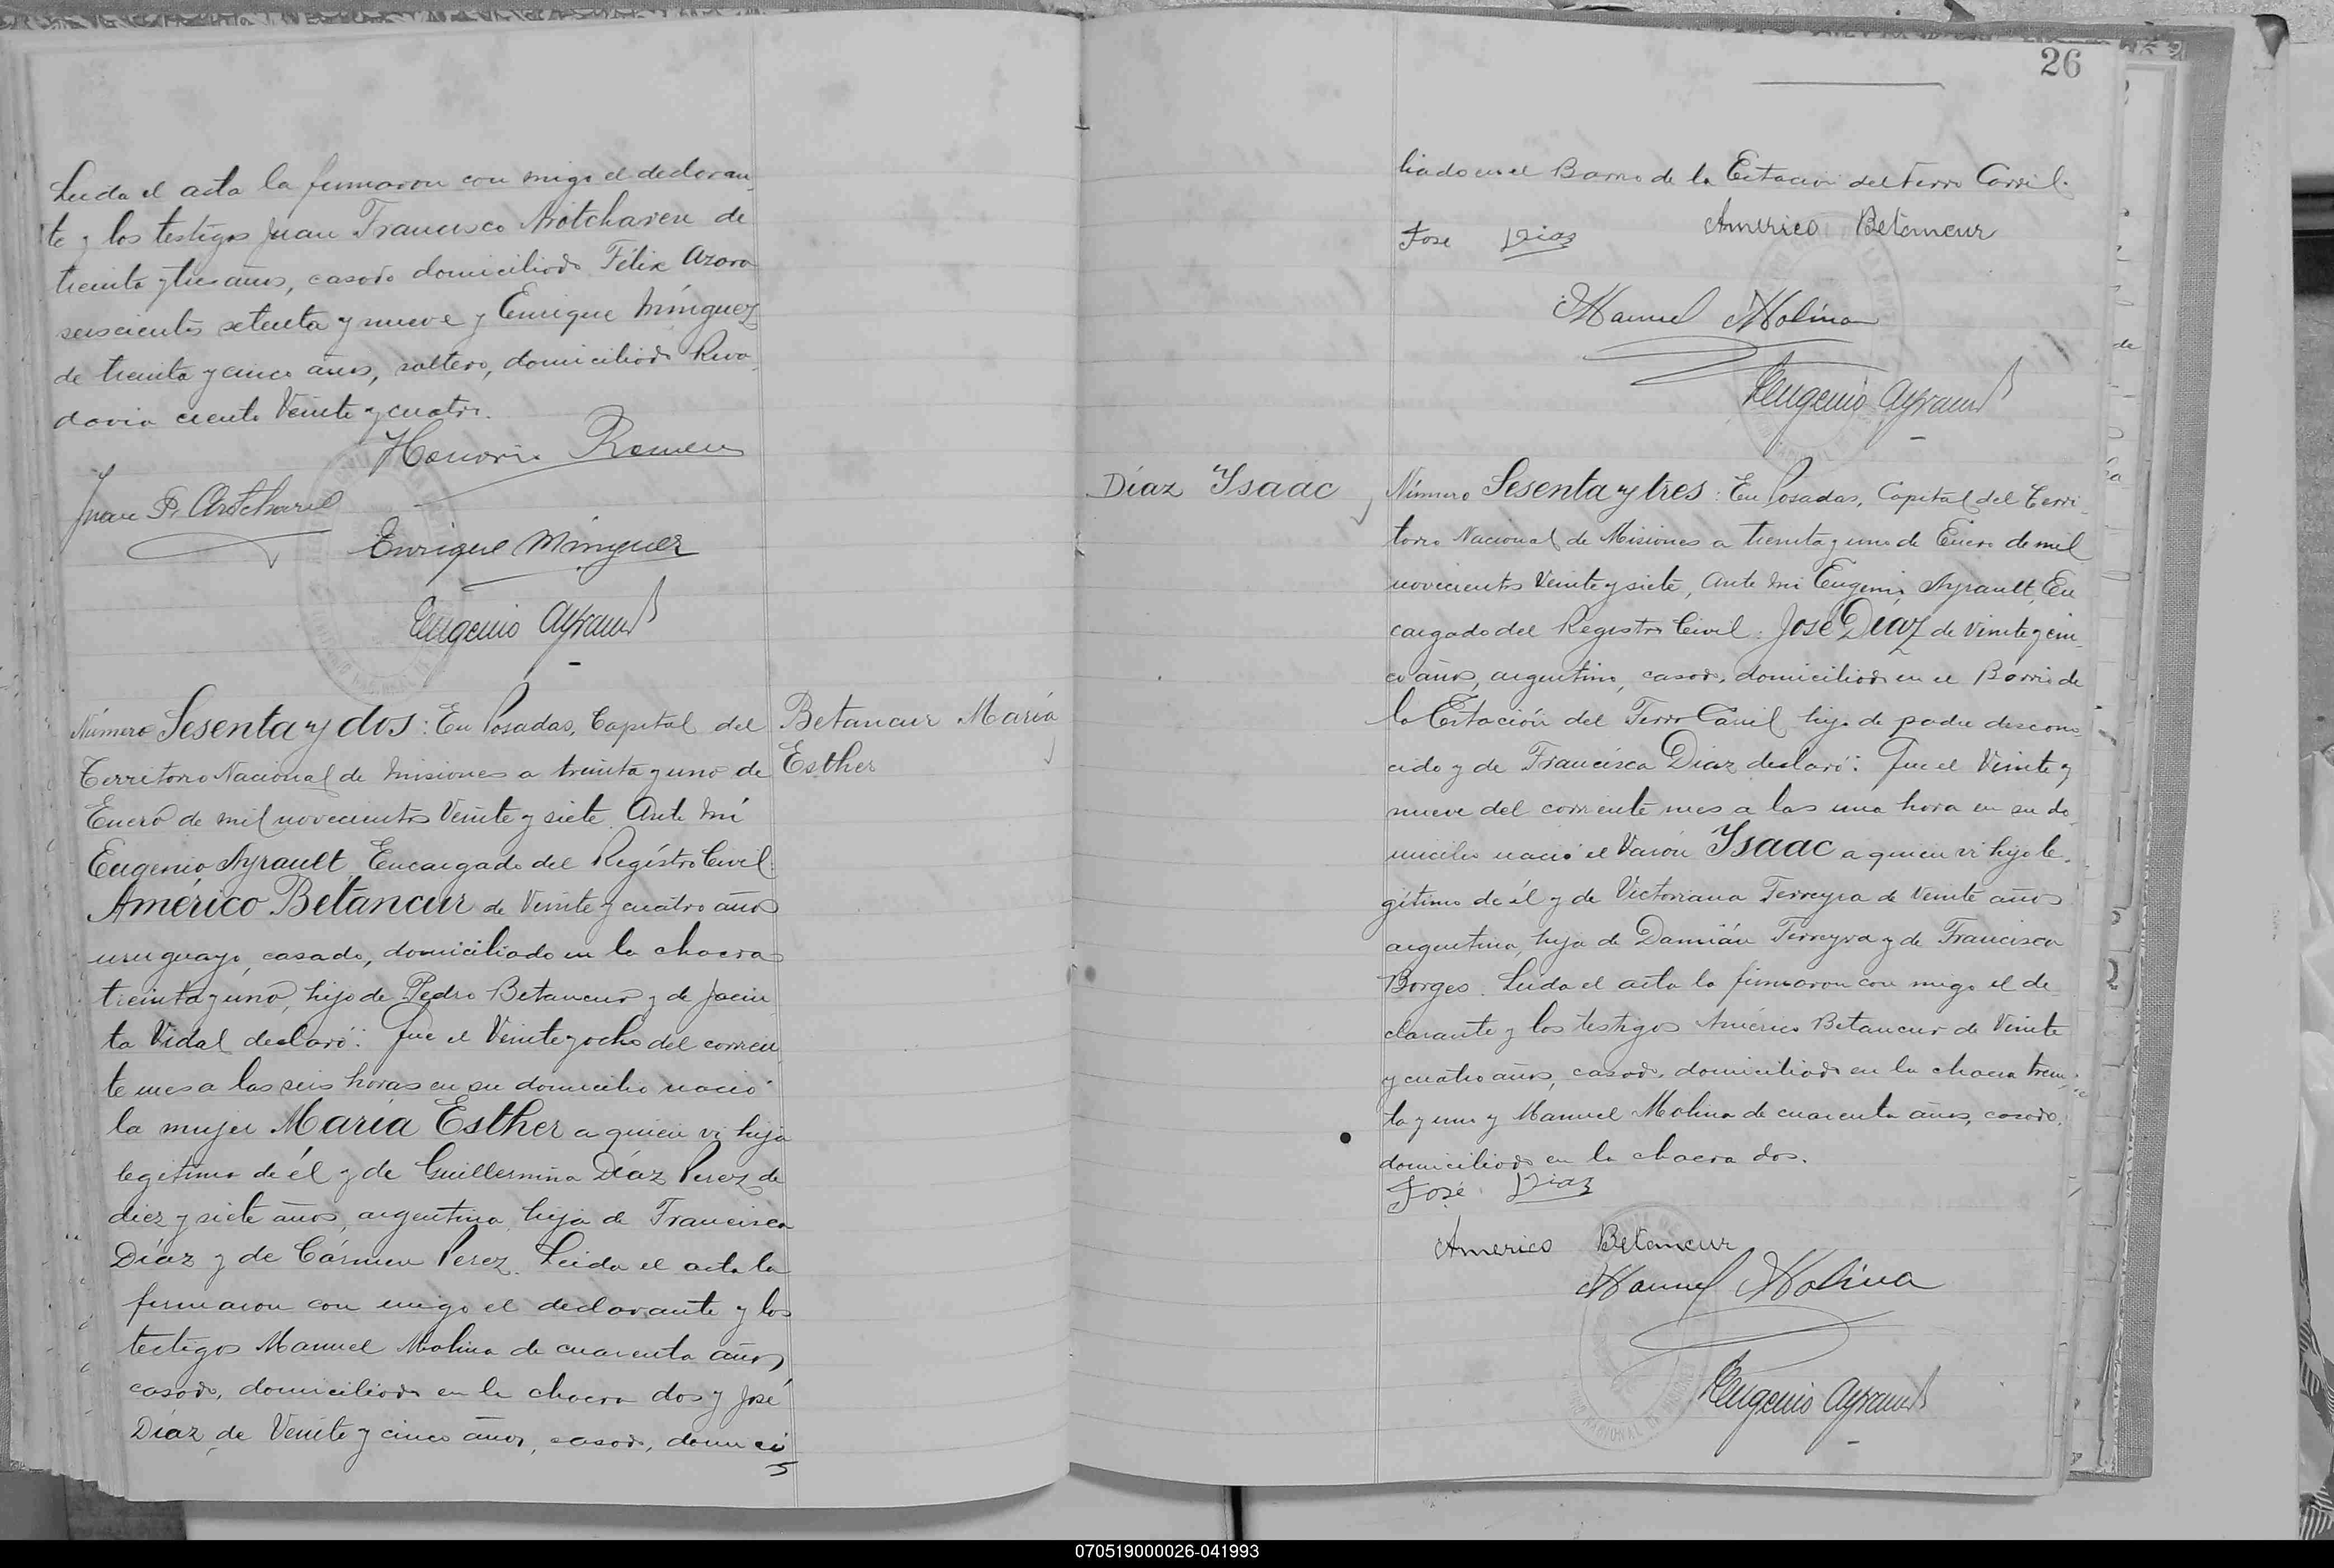 Leida el acta la firmaron con migo el declaran
te y los testigos Juan Francisco Arotcharen de
treinta y tres años, casado domiciliado Félix Azara
seiscientos setenta y nueve y Enrique Mínguez
de treinta y cinco años, soltero, domiciliado Riva
davia ciento Veinte y cuatro.
Honorio
Juan P.
Enrique Minguez
Eugenio Ayrault
Número Sesenta y dos: En Posadas, Capital del
Territorio Nacional de Misiones a treinta y uno de
Enero de mil novecientos Veinte y siete. Ante Mí
Eugenio Ayrault, Encargado del Registro Civil:
Américo Betancur de Veinte y cuatro años
uruguayo, casado, domiciliado en la chacra
treinta y uno, hijo de Pedro Betancur y de Jacin
ta Vidal declaró: Que el Veinte y ocho del corrien
te mes a las seis horas en su domicilio nació
la mujer María Esther a quien vi hija
legítima de él y de Guillermina Díaz Perez de
diez y siete años, argentina, hija de Francisco
Díaz y de Cármen Perez. Leida el acta la
firmaron con migo el declarante y los
testigos Manuel Molina de cuarenta años,
casado, domiciliado en la chacra dos y José
Díaz de Veinte y cinco años, casado, domici
5
Betancur María
Esther
26
liado en el Barrio de la Estacion del Ferro Carril.
Jose Diaz
Americo Betancur
Manuel Molina
Eugenio Ayrault
Díaz Ysaac
Número Sesenta y tres: En Posadas, Capital del Terri
torio Nacional de Misiones a treinta y uno de Enero de mil
novecientos Veinte y siete, Ante Mí Eugenio Ayrault, En
cargado del Registro Civil: José Díaz de Veinte y cin
co años, argentino, casado, domiciliado en el Barrio de
la Estación del Ferro Carril hijo de padre descono
cido y de Francisca Díaz declaró: Que el Veinte y
nueve del corriente mes a las una hora en su do
micilio nació el Varón Ysaac a quien vi hijo le
gítimo de él y de Victoriana Ferreyra de Veinte años
argentina, hija de Damián Ferreyra y de Francisca
Borges. Leida el acta la firmaron con migo el de
clarante y los testigos Américo Betancur de Veinte
y cuatro años, casado, domiciliado en la chacra trein
ta y uno y Manuel Molina de cuarenta años, casado,
domiciliado en la chacra dos.
José Diaz
Americo Betancur
Manuel Molina
Eugenio Ayrault
070519000026-041993